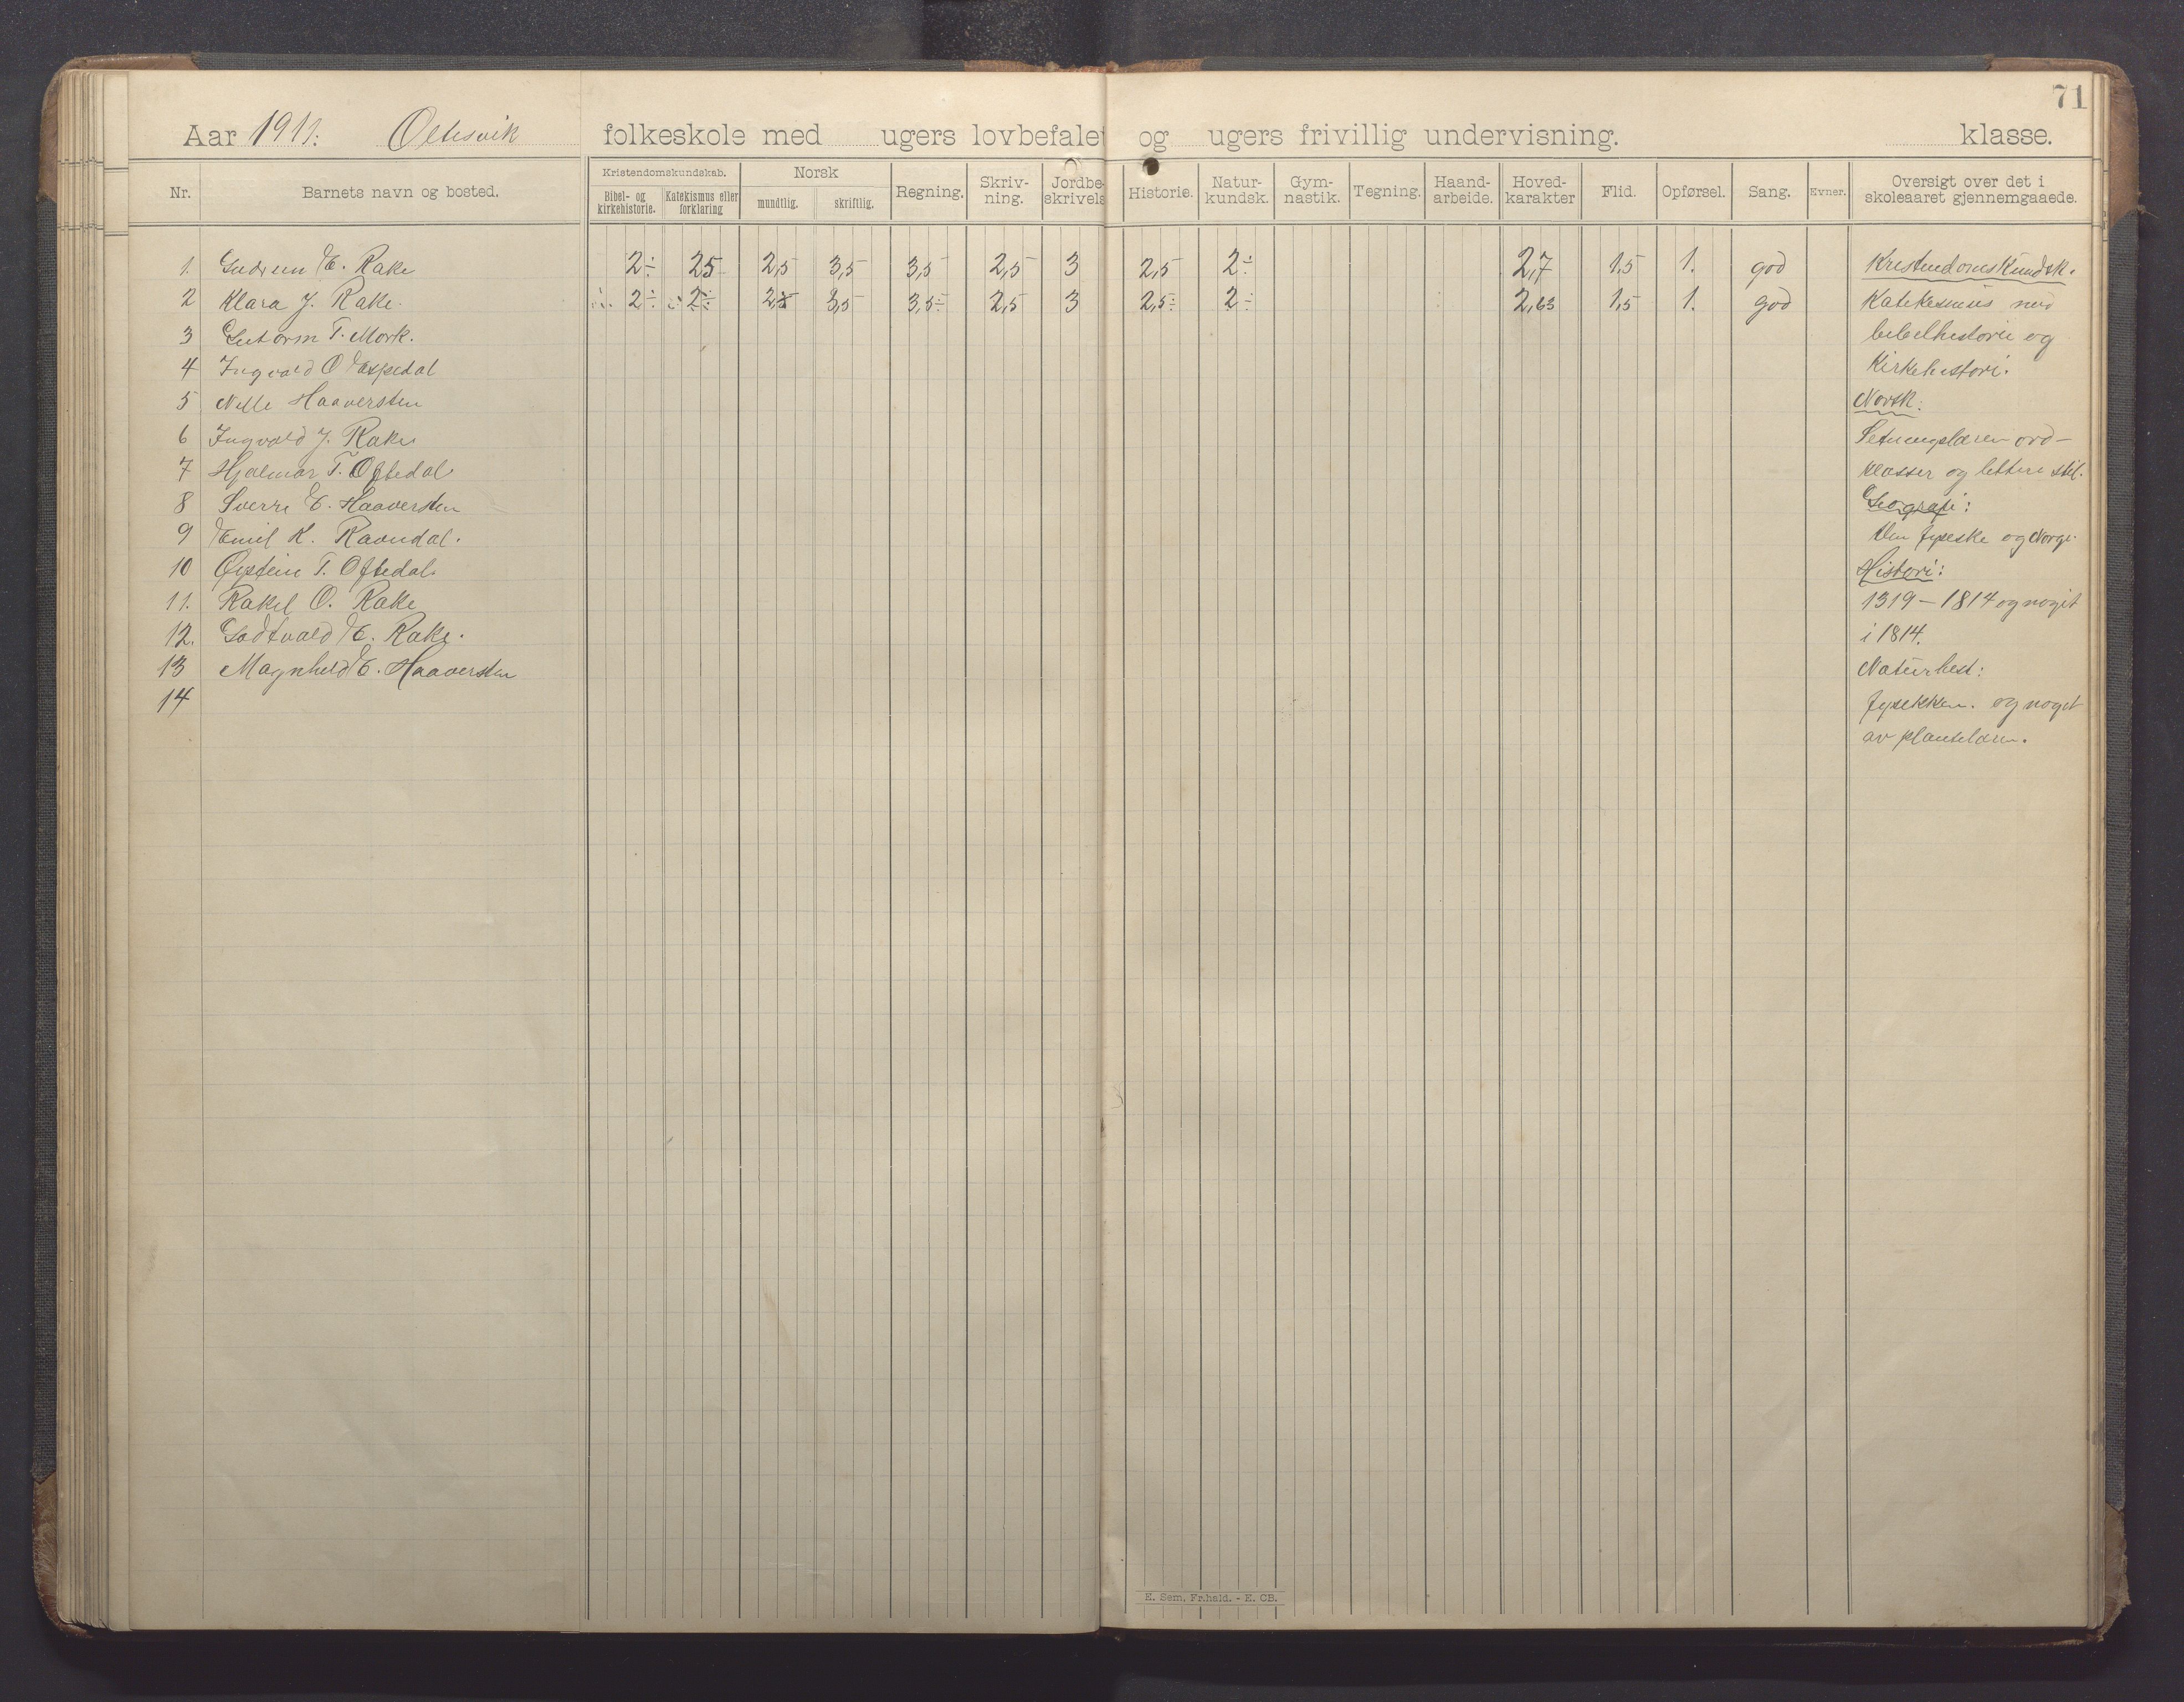 71
Aar 1911. Oltesvik folkeskole med ugers lovbefalet og ugers frivillig undervisning. klasse.
Nr. Barnets navn og bosted. Kristendomskundskab. Bibel- og kirkehistorie. Katekismus eller forklaring Norsk mundtlig. skriftlig. Regning. Skriv-ning. Jordbe-skrivels Historie. Natur-kundsk. Gym-nastik. Tegning. Haand-arbeide. Hoved-karakter Flid. Opførsel. Sang. Evner. Oversigt over det i skoleaaret gjennemgaaede.
1. Gudrun E. Rake 2÷ 25 2,5 3,5 3,5 2,5 3 2,5 2÷ 2,7 1,5 1. god Kristendomskundsk.
2 Klara J. Rake. 2÷ 2÷ 2,5 3,5 3,5÷ 2,5 3 2,5÷ 2÷ 2,63 1,5 1. god Katekesmus med
3 Gutorm T. Mork. bebelhestorie og
4 Ingvald O Espedal Kirkehestori.
5 Nelle Haaversten Norsk:
6 Ingvald J. Rake Setningslæren ord-
7 Hjalmar T. Oftedal klasser og lettere stil.
8 Sverre E. Haaversten Geografi:
9 Emil K. Ravndal. Den fyseske og Norge.
10 Øystein T. Oftedal. Histori:
11. Rakel O. Rake 1319 - 1814 og noget
12. Godtvald E. Rake. i 1814.
13 Magnheld E. Haaversten Naturhest:
14 fysekken. og noget
av plantelæren.
E. Sem, Fr.hald. - E. CB.